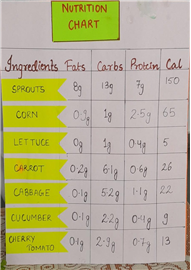 NUTRITION
CHART
Ingredients Fats Carbs Protein Cal
SPROUTS 8g 13g 7g 150
CORN 1g 2.5g 65
LETTUCE 0g 1g 0.4g 5
CARROT 0.2g 6.1g 0.6g 26
CABBAGE 0.1g 5.2g 1.1g 22
CUCUMBER 0.1g 2.2g 0.4g 9
CHERRY TOMATO 0.1g 2.9g 0.7g 13